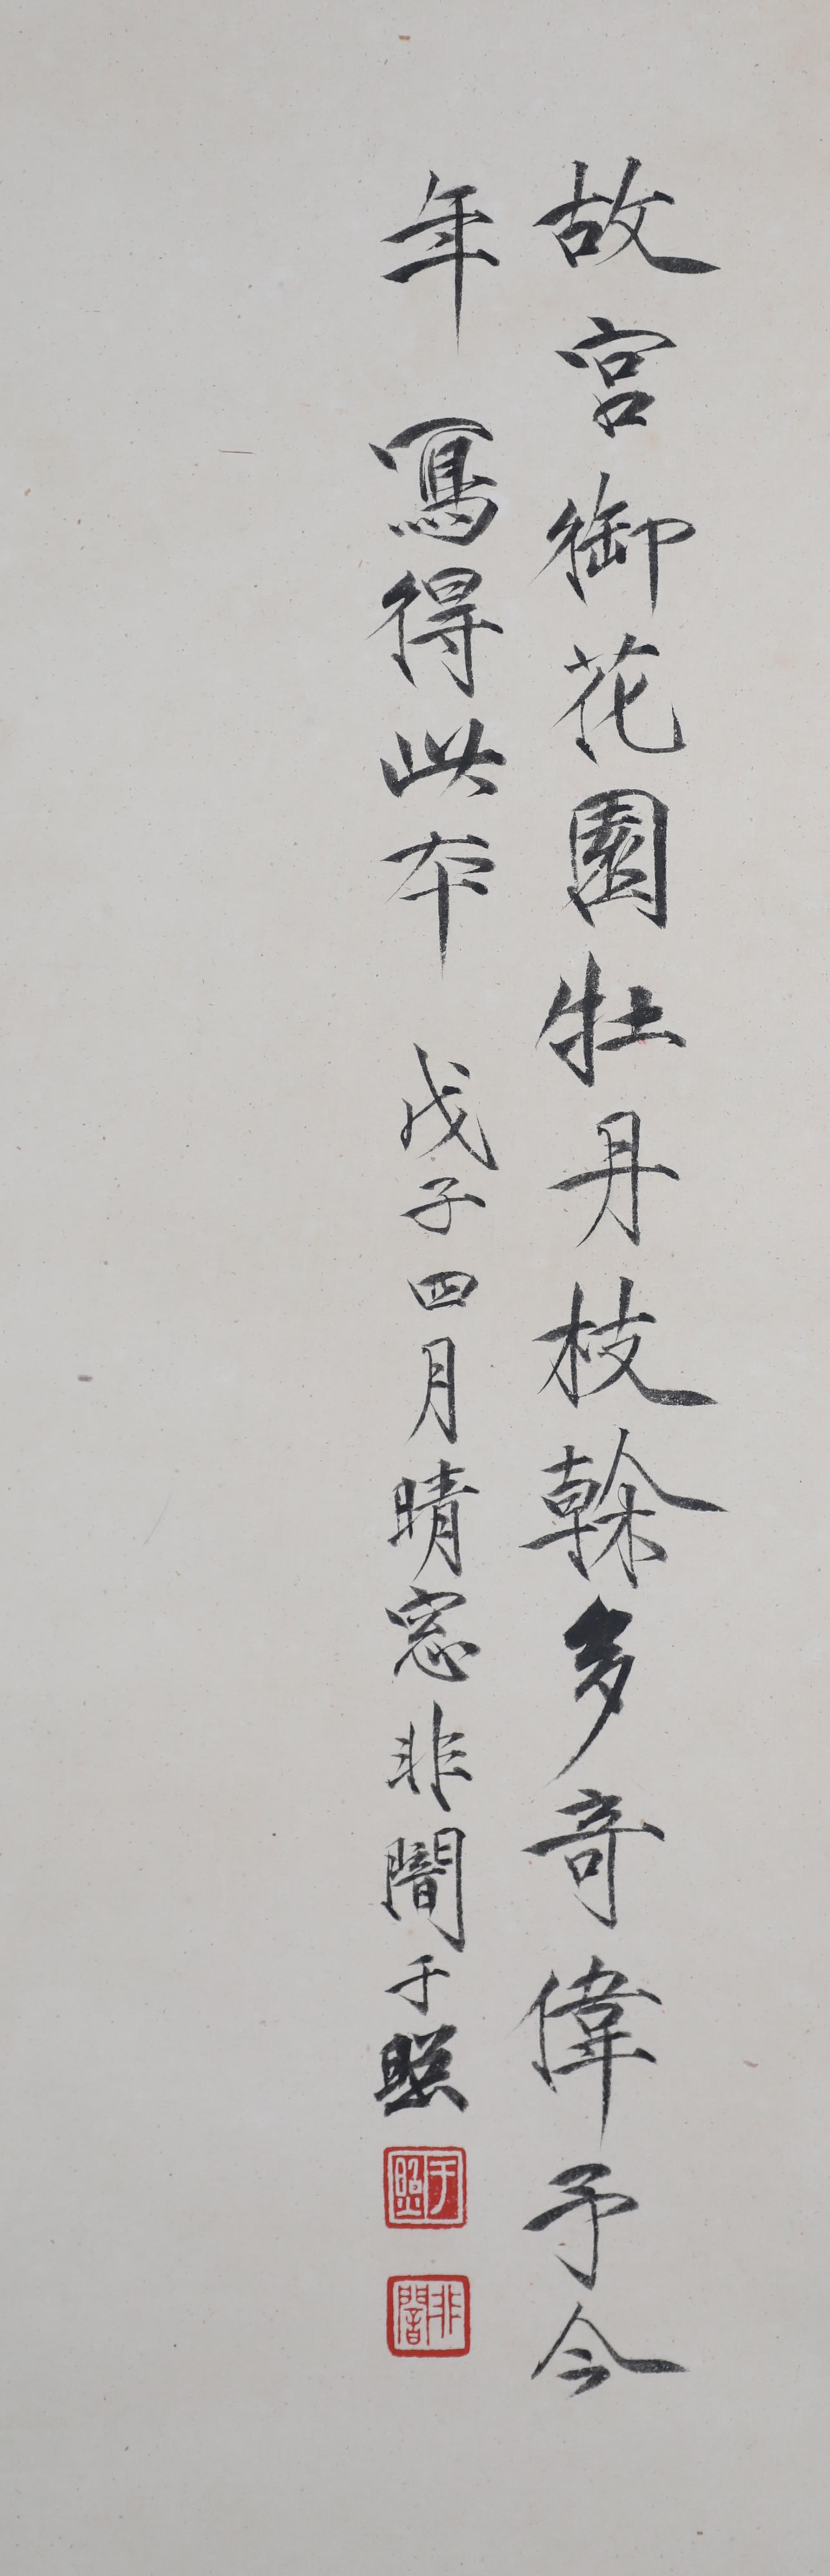 故宮御花園牡丹枝榦多奇偉予今
年寫得此本戊子四月晴窓非闇于照
于照
非闇